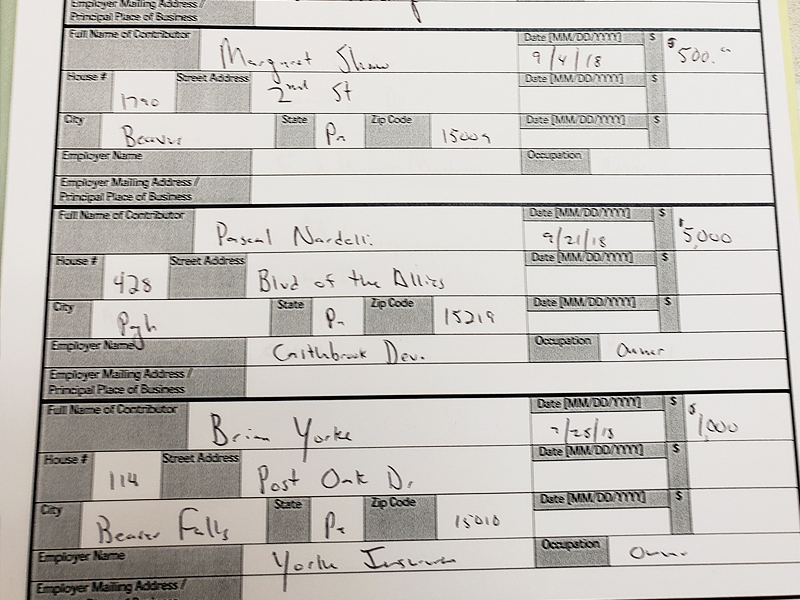 Employer Mailing Address /
Principal Place of Business
Full Name of Contributor Margaret Shaw Date [MM/DD/YYYY] 9/4/18 $ $500.
House # 1790 Street Address 2nd St Date [MM/DD/YYYY] $
City Beaver State Pa Zip Code 15009 Date [MM/DD/YYYY] $
Employer Name Occupation
Employer Mailing Address /
Principal Place of Business
Full Name of Contributor Pascal Nardelli Date [MM/DD/YYYY] 9/21/18 $ $5,000
House # 428 Street Address Blvd of the Allies Date [MM/DD/YYYY] $
City Pgh State Pa Zip Code 15219 Date [MM/DD/YYYY] $
Employer Name Dev. Occupation Owner
Employer Mailing Address /
Principal Place of Business
Full Name of Contributor Brian Yorke Date [MM/DD/YYYY] $ $1,000
House # 114 Street Address Post Oak Dr Date [MM/DD/YYYY] $
City Beaver Falls State Pa Zip Code 15010 Date [MM/DD/YYYY] $
Employer Name Yorke Insurance Occupation Owner
Employer Mailing Address /